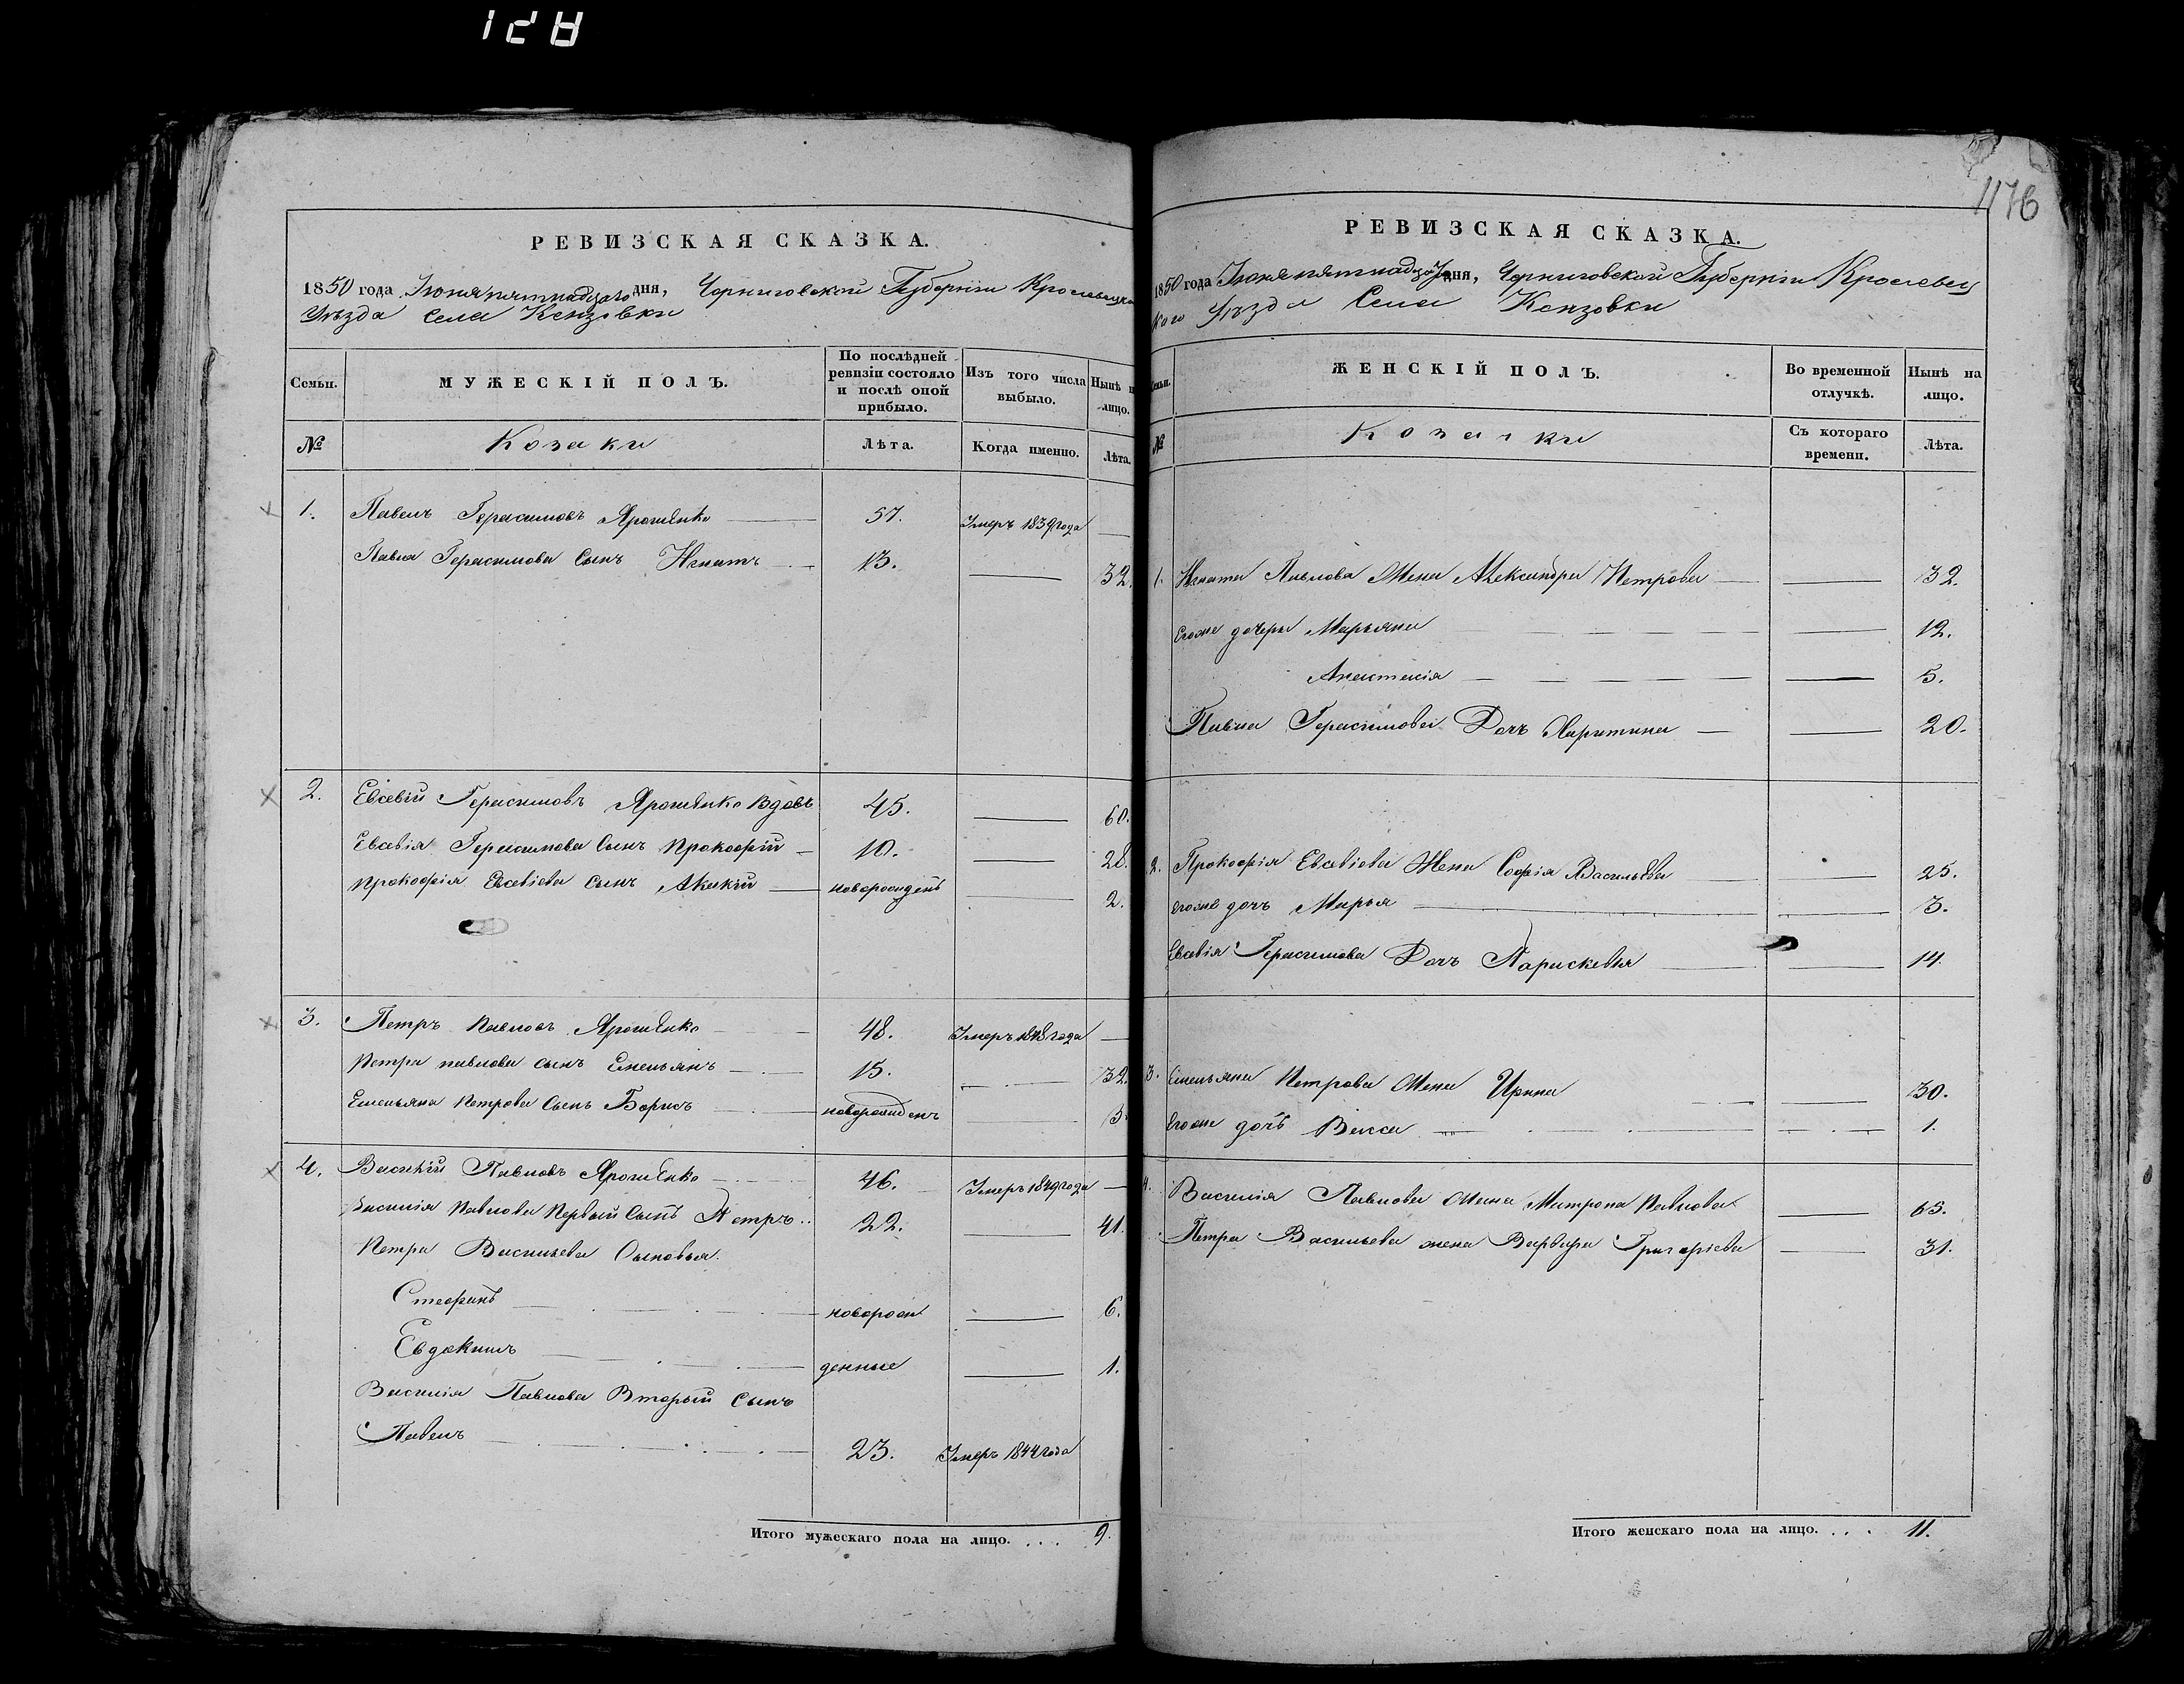 128
РЕВИЗСКАЯ СКАЗКА.
1850 года Іюня пятнадцатого дня, Черниговской Губерніи Кролевецка
Уѣзда Села Кензовки
Семьи.
МУЖЕСКІЙ ПОЛЪ.
По послѣдней ревизіи состояло и послѣ оной прибыло.
Изъ того числа выбыло.
Нынѣ н лицо.
№
Козаки
Лѣта.
Когда именно.
Лѣта.
1. Павелъ Герасимовъ Ярошенко 57. Умеръ 1839 года
Павла Герасимова Сынъ Игнатъ 13. 32.
2. Евсевій Герасимовъ Ярошенко Вдовъ 45. 60.
Евсевія Герасимова Сынъ Прокофій 10. 28.
Прокофія Евсевіева Сынъ Акакій новорожденъ 2.
3. Петръ Павловъ Ярошенко 48. Умеръ 1848 года
Петра павлова сынъ Емельянъ 15. 32.
Емельяна Петрова Сынъ Борисъ новорожденъ 5.
4. Василій Павловъ Ярошенко 46. Умеръ 1849 года
Василія Павлова Первый Сынъ Петръ 22. 41.
Петра Васильева Сыновья
Стефанъ новорож 6.
Евдокимъ денные 1.
Василія Павлова Вторый Сынъ
Павелъ 23. Умеръ 1844 года
Итого мужескаго пола на лицо. . . . 9.
1176
РЕВИЗСКАЯ СКАЗКА.
1850 года Іюня пятнадца дня, Черниговской Губерніи Кролевец
кого Уѣзда Села Кензовки
Семьи.
ЖЕНСКІЙ ПОЛЪ.
Во временной отлучкѣ.
Нынѣ на лицо.
№
Козачки
Съ котораго времени.
Лѣта.
1. Игната Павлова Жена Александра Петрова 32.
Егоже дочери Марьяна 12.
Анастасія 5.
Павла Герасимова Дочъ Харитина 20.
2. Прокофія Евсевіева Жена Софія Васильева 25.
Егоже дочъ Марья 3.
Евсевія Герасимова Дочъ Параскевія 14.
3. Емельяна Петрова Жена Ирина 30.
Егоже дочъ Васса 1.
4. Василія Павлова жена Матрона Павлова 65.
Петра Васильева жена Варвара Григоріева 31.
Итого женскаго пола на лицо. . . . 11.